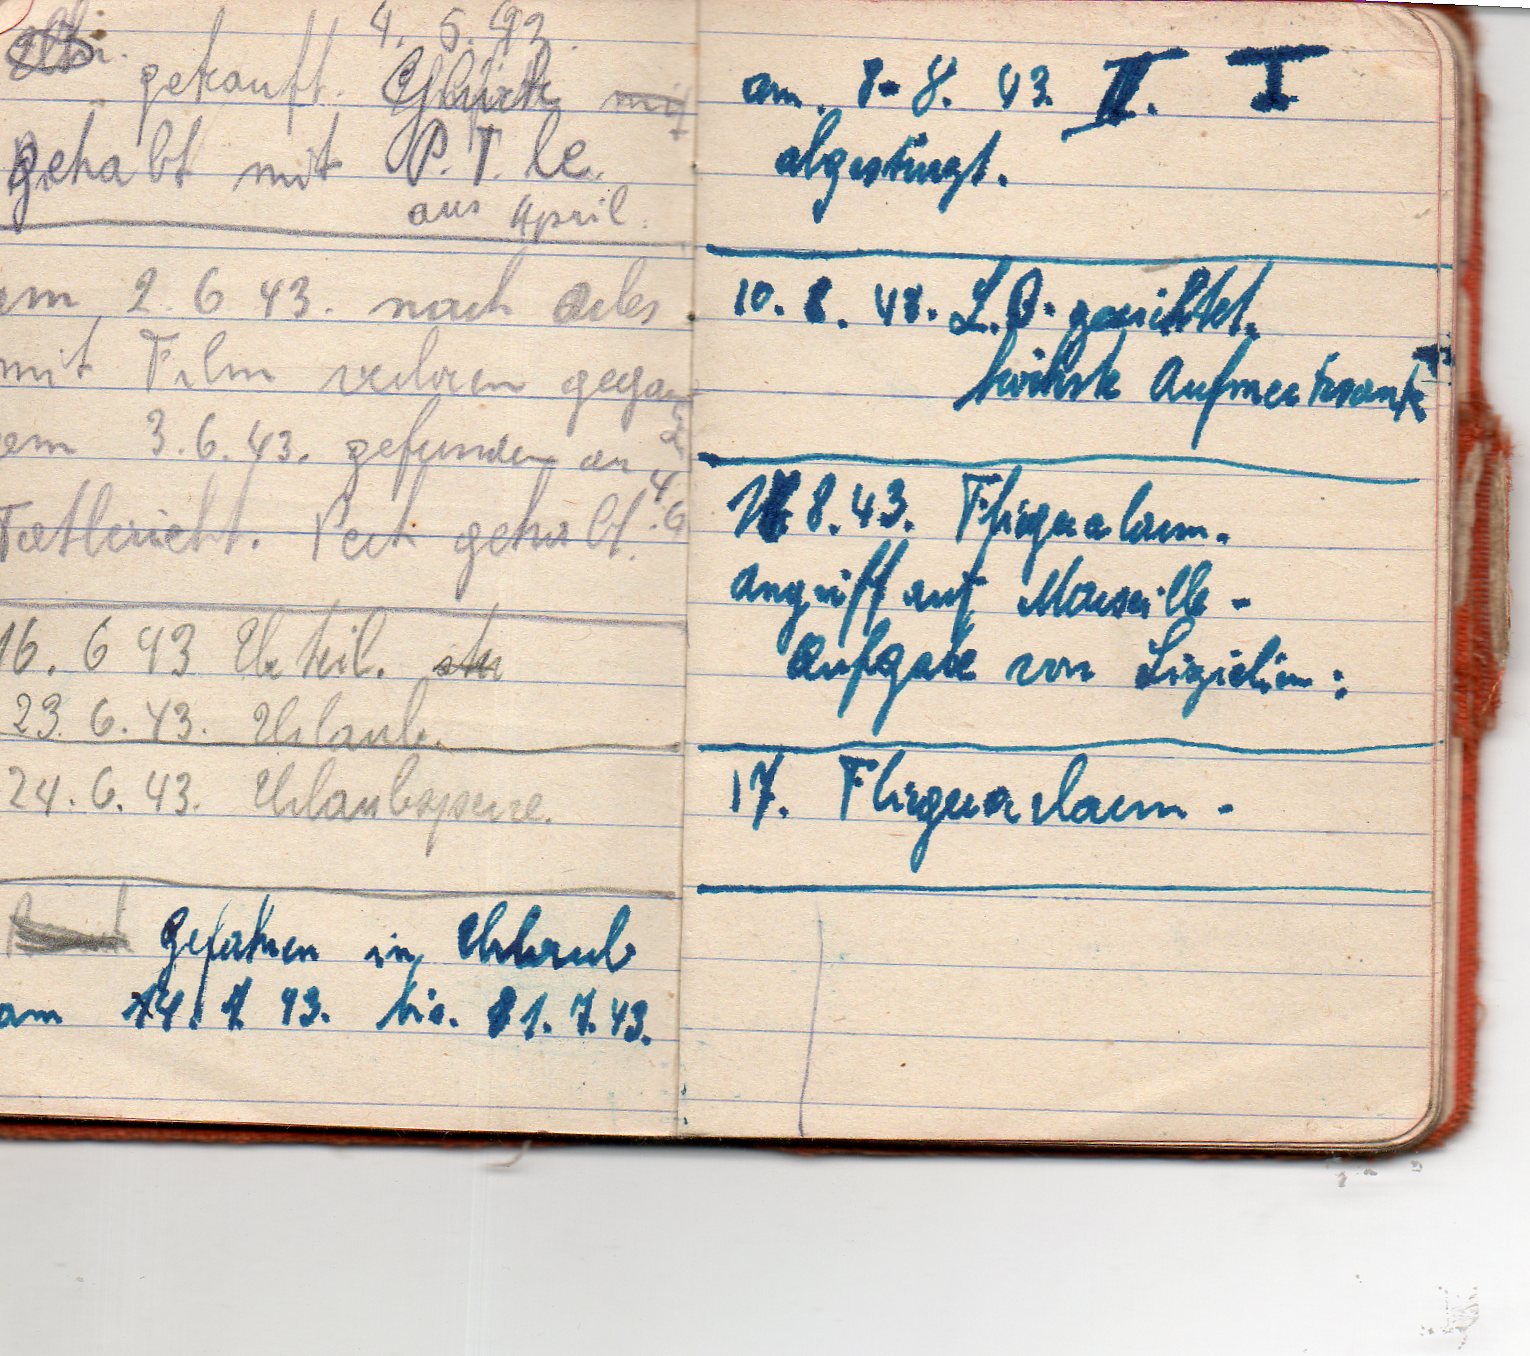 4. 5. 43.
gekauft. Glück mit
gehabt mit P.T. le.
aus April.
am 2.6.43. nach Arles
mit Film verloren gegan
am 3.6.43. gefunden an
Tatbericht. Pech gehabt.
16. 6 43 Urteil.
23. 6. 43. Urlaub.
24. 6. 43. Urlaubsperre.
Gefahren in Urlaub
am 14. 7. 43. bis. 31. 7. 43.
am. 8-8. 43. II. I
abgestürzt.
10. 8. 43. L.O. gesichtet.
höchste Aufmerksamk
8.43. Fliegeralarm.
Angriff auf Marseille -
Aufgabe von Sizielien:
17. Fliegeralarm -